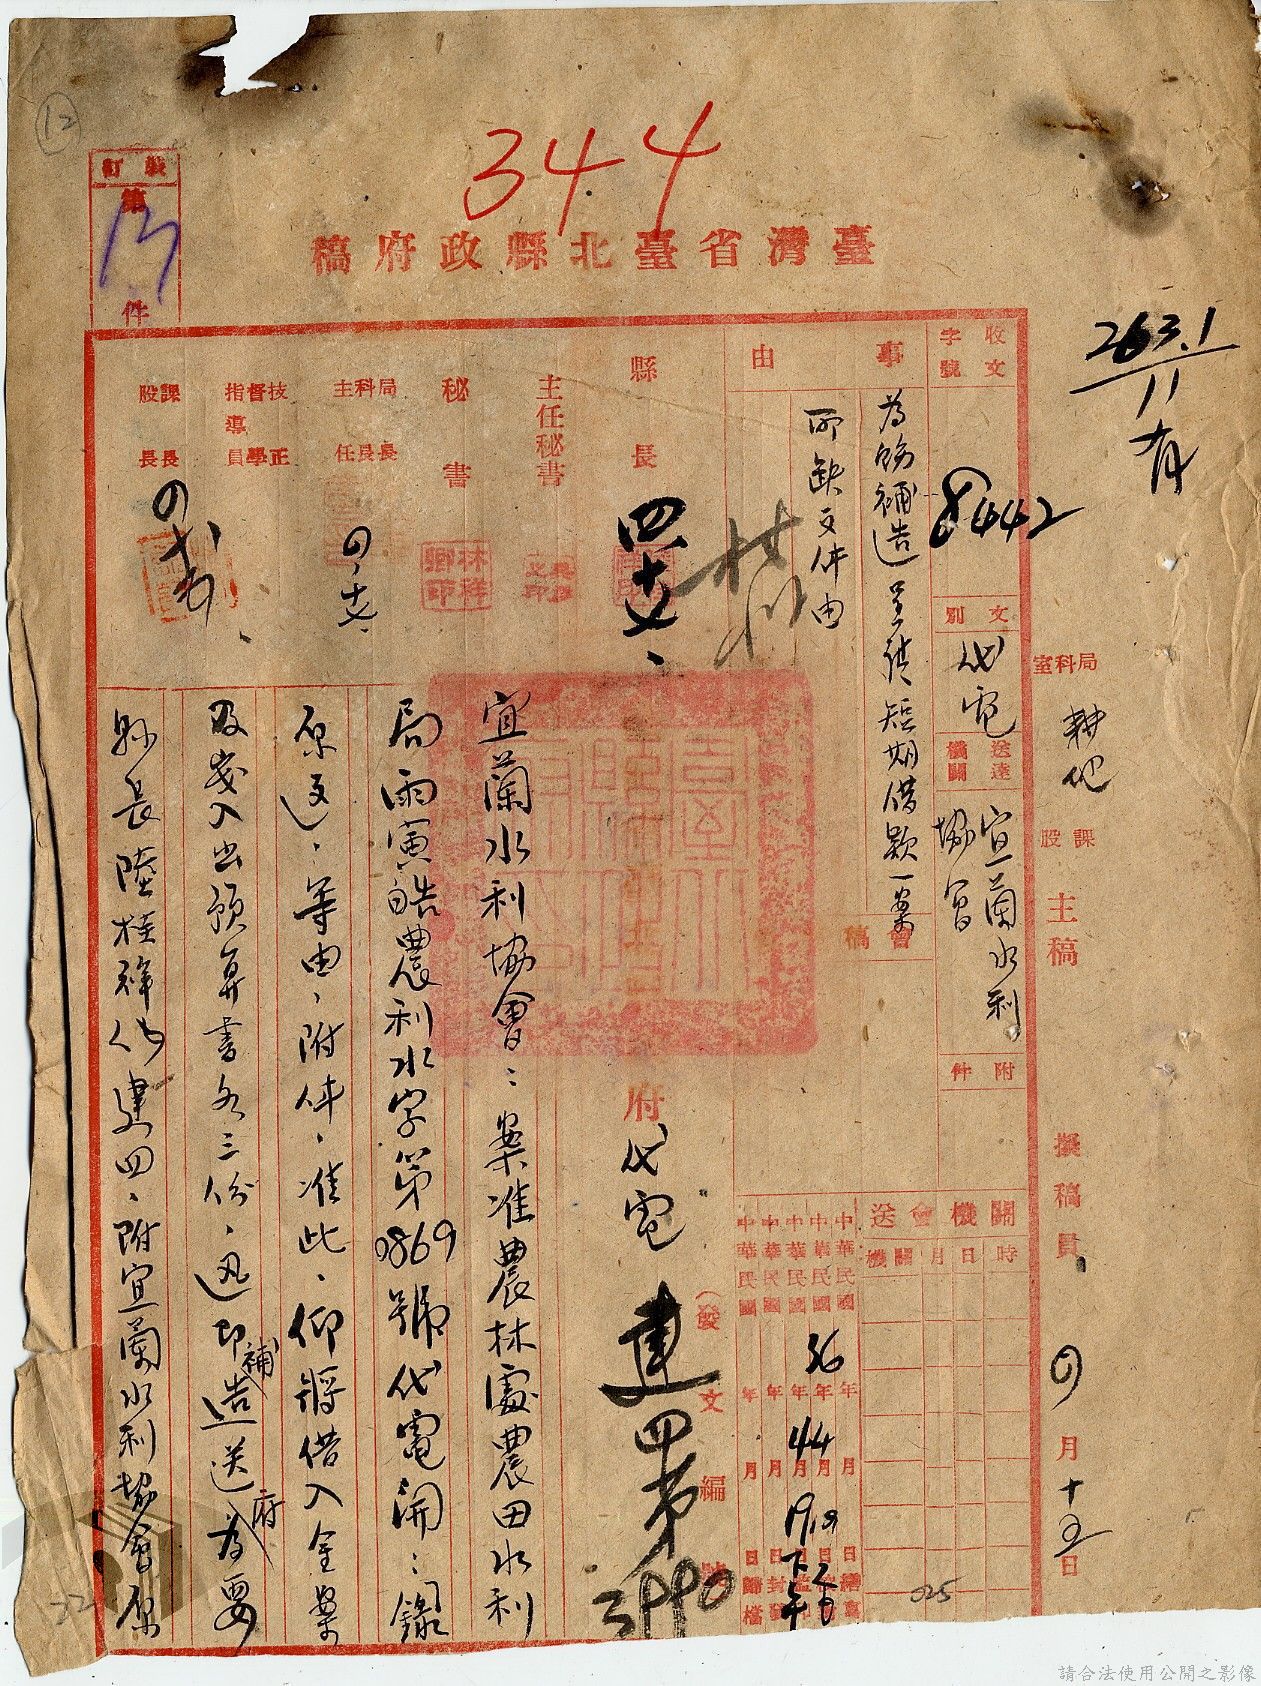 344
12
裝訂
第
13
件
臺灣省臺北縣政府稿
263.1
11
收文
字號
8442
文別
代電
送達
機關
宜蘭水利
協會
附件
事由
為飭補造呈請短期借款一案
所缺文件由
會稿
縣長
四、十七、
主任秘書
秘書
林祥
卿印
局科主
長長任
四、十七、
技督指
導
正學員
課股
長長
局科室
課股
主稿
撰稿員
四月十五日
關機會送
時日月關機
中華民國36年4月
中華民國年月日
中華民國年月日封發
中華民國年月日歸檔
(發文編號
府代電
建四第3990
宜蘭水利協會:案准農林處農田水利
局雨寅皓農利水字第0869號代電開:鑈
原送、等由、附件、准此、仰將借入金案
及歲入出預算書各三份、迅即補造送府為要
縣長陸桂祥代建四、附宜蘭水利協會原
025
22
請合法使用公開之影像